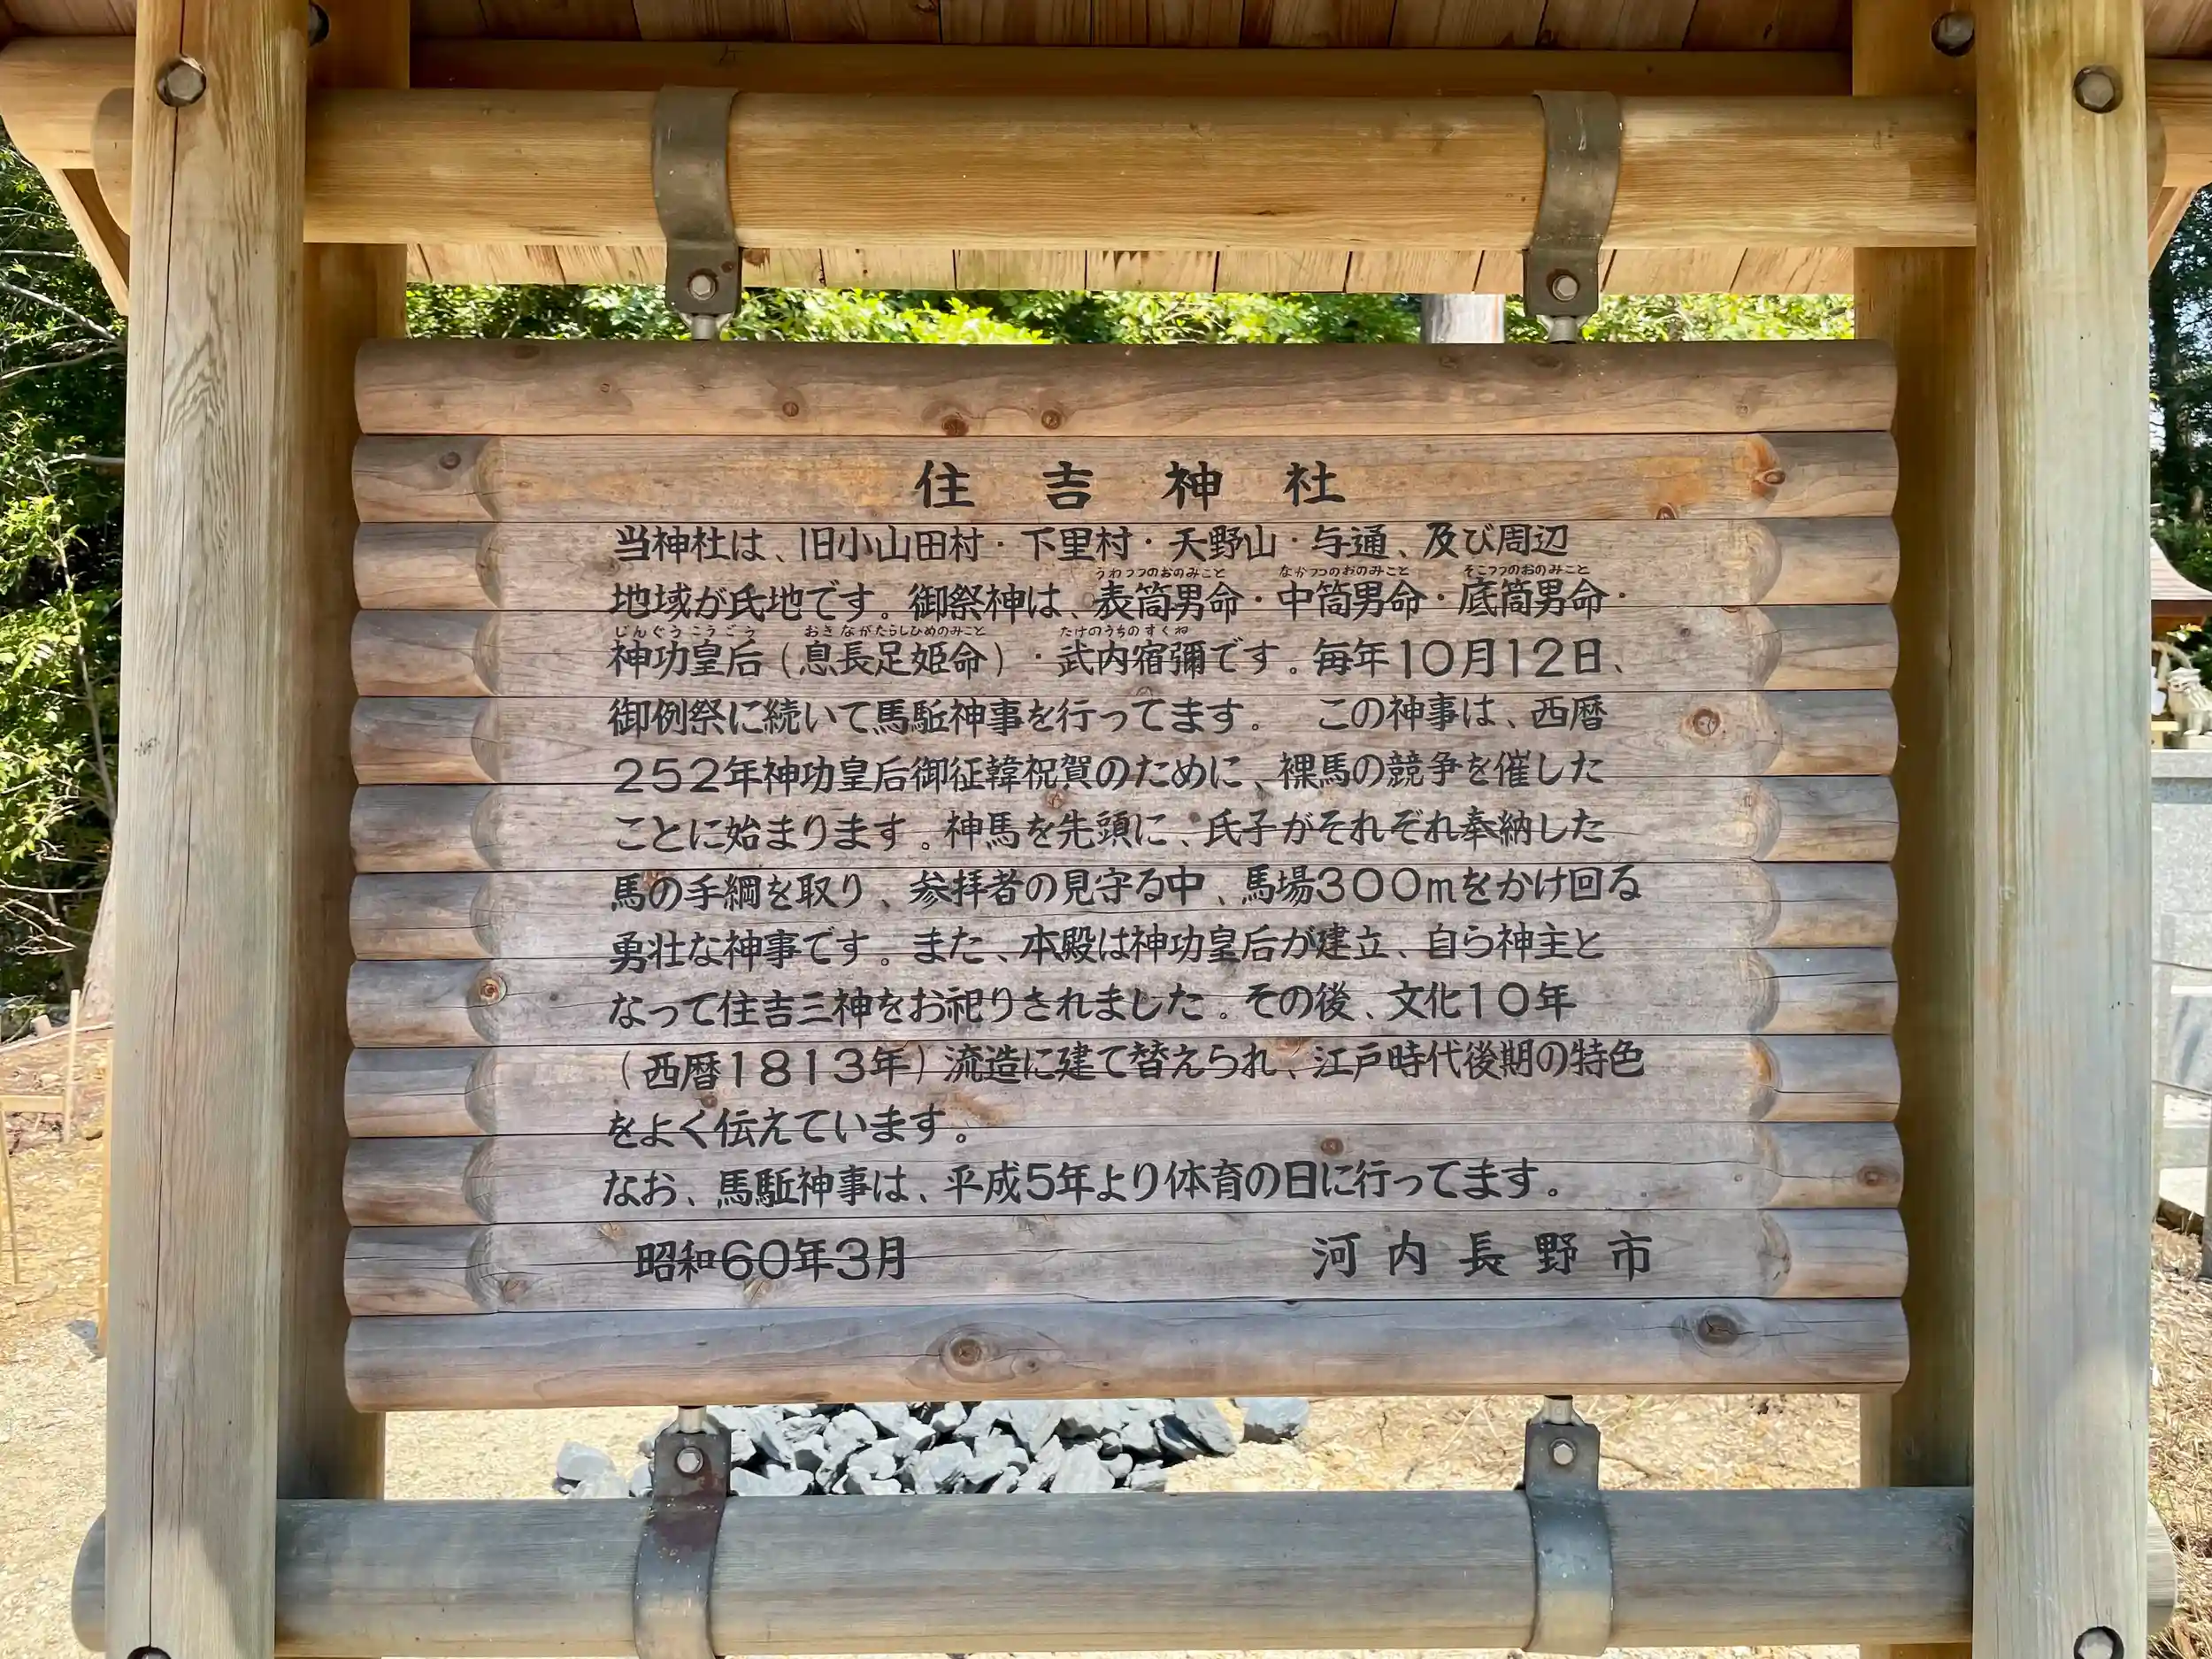 住吉神社
当神社は、旧小山田村・下里村・天野山・与通、及び周辺
うわつつのおのみこと なかつつのおのみこと そこつつのおのみこと
地域が氏地です。御祭神は、表筒男命・中筒男命・底筒男命・
じんぐうこうごう おきながたらしひめのみこと たけのうちのすくね
神功皇后(息長足姫命)・武内宿彌です。毎年10月12日、
御例祭に続いて馬駈神事を行ってます。 この神事は、西暦
252年神功皇后御征韓祝賀のために、裸馬の競争を催した
ことに始まります。神馬を先頭に、氏子がそれぞれ奉納した
馬の手綱を取り、参拝者の見守る中、馬場300mをかけ回る
勇壮な神事です。また、本殿は神功皇后が建立、自ら神主と
なって住吉三神をお祀りされました。その後、文化10年
(西暦1813年)流造に建て替えられ、江戸時代後期の特色
をよく伝えています。
なお、馬駈神事は、平成5年より体育の日に行ってます。
昭和60年3月 河内長野市